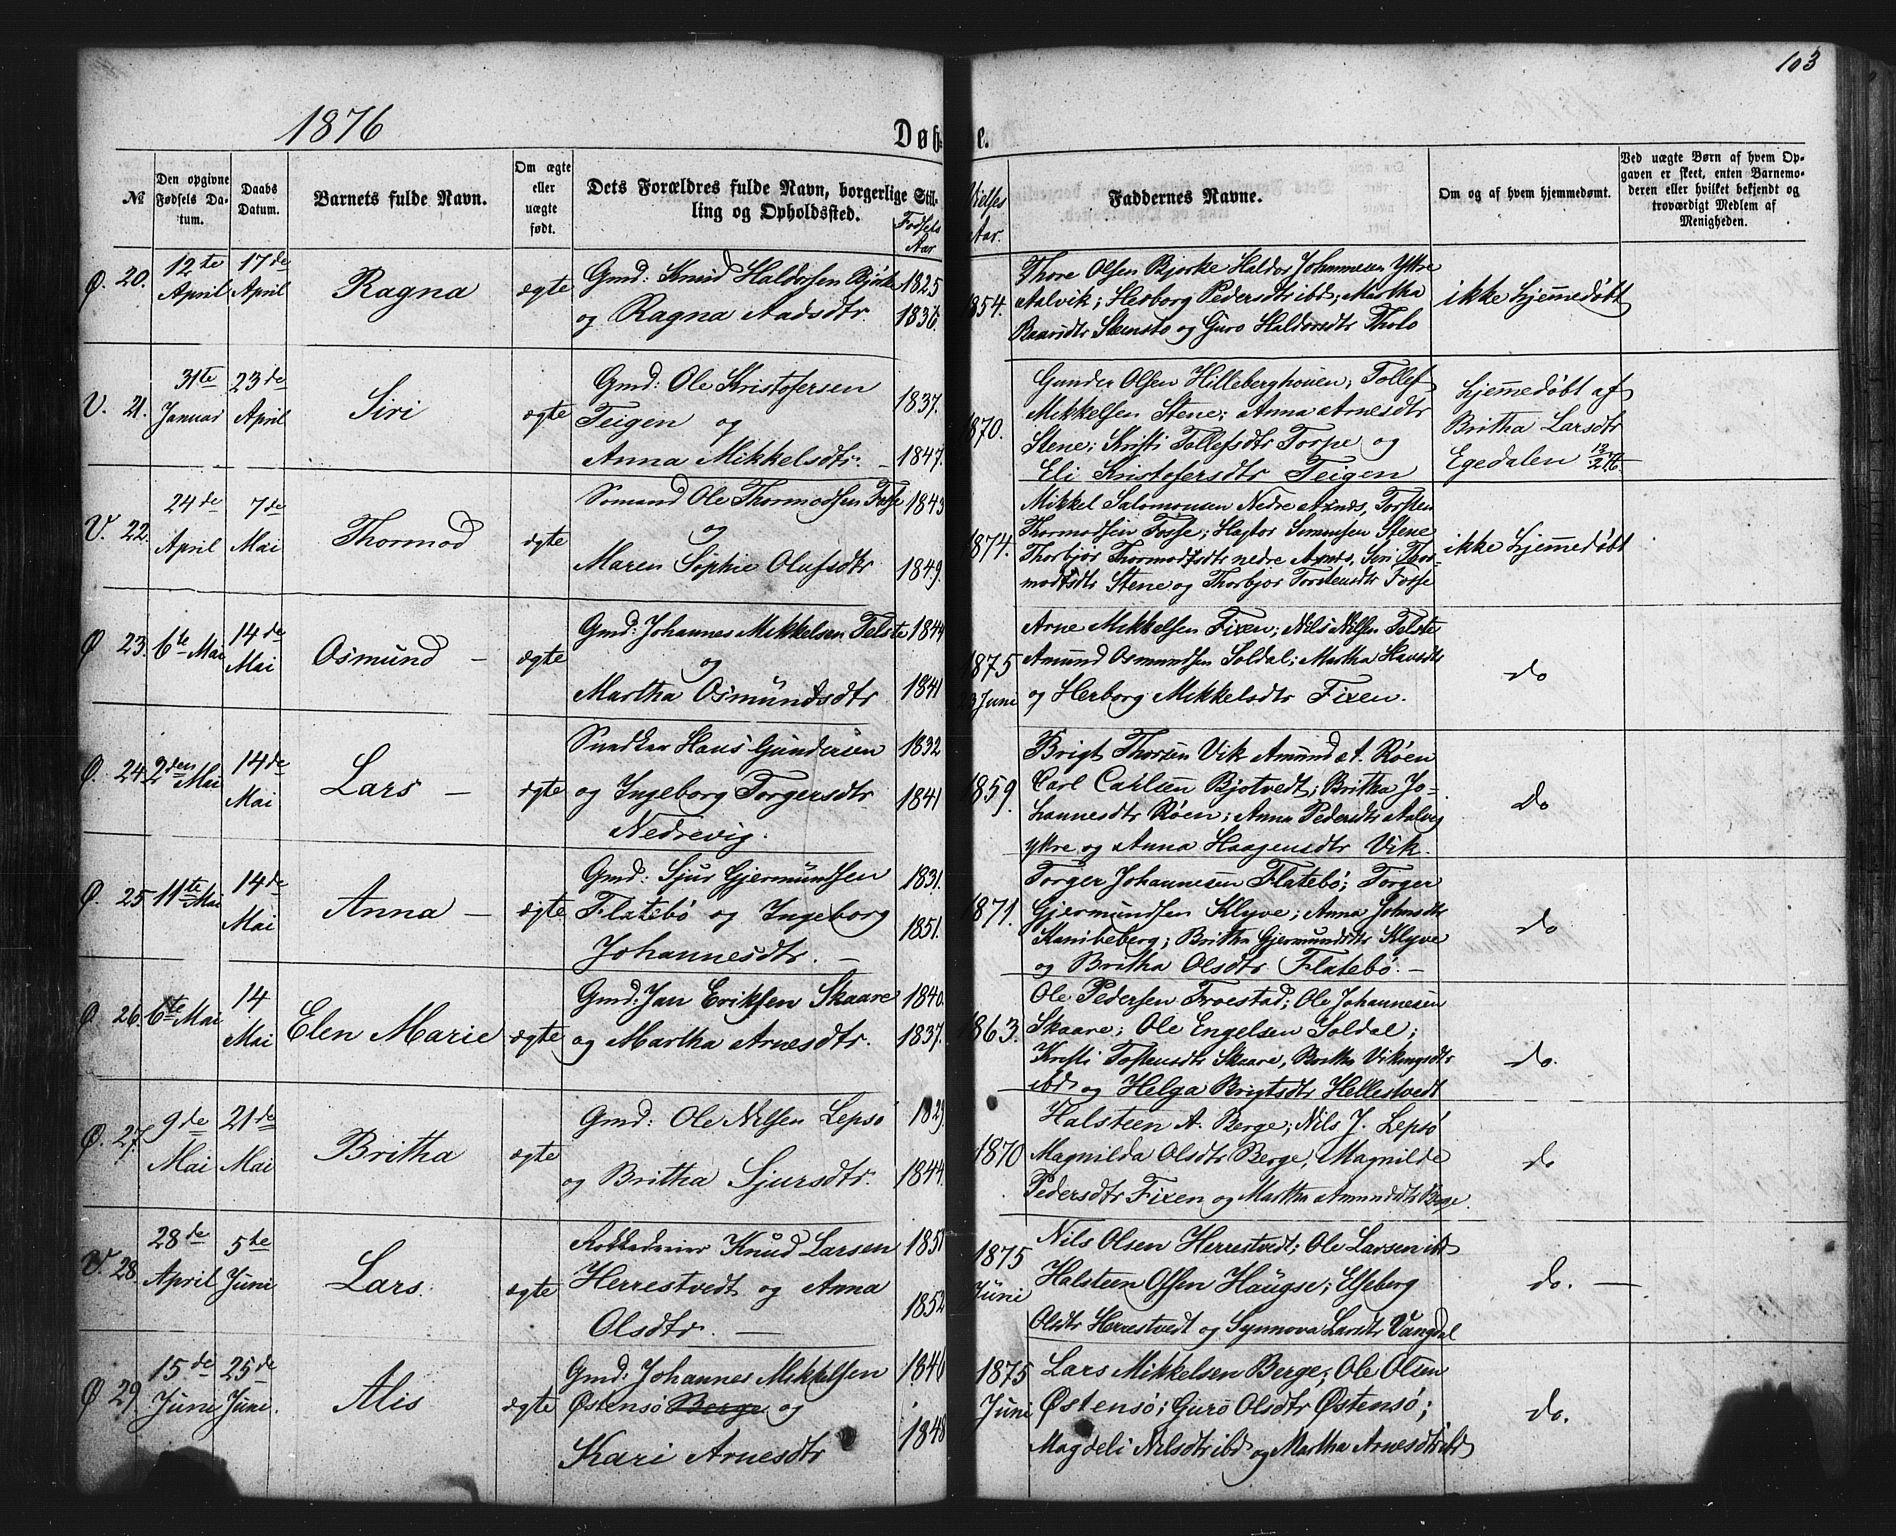 103
1876
Døb- e.
№
Den opgivne Fødsels Da-tum.
Daabs Datum.
Barnets fulde Navn.
Om ægte eller uægte født.
Dets Forældres fulde Navn, borgerlige Stil-
ling og Opholdssted.
Fødsels Aar
Vielses Aar.
Faddernes Navne.
Om og af hvem hjemmedømt.
Ved uægte Børn af hvem Op-
gaven er skeet, enten Barnemo-
deren eller hvilket bekjendt og
troværdigt Medlem af
Menigheden.
Ø. 20. 12te April 17de April Ragna ægte
Gmd: Knud Haldorsen Bjørke 1825
og Ragna Aadsdtr. 1836.
1854.
Thore Olsen Bjørke Haldor Johannesen Yttre
Aalvik; Herborg Pedersdtr ibd; Martha
Baarsdtr Skensto og Guro Haldorsdtr Tholo
ikke hjemmedøbt
V. 21. 31te Januar 23de April Siri ægte
Gmd: Ole Kristofersen 1837.
Teigen og
Anna Mikkelsdtr. – 1847.
1870.
Gunder Olsen Hilleberghouen; Tollef
Mikkelsen Stene; Anna Arnesdtr
Stene; Kristi Tollefsdtr Torpe og
Eli Kristofersdtr Teigen
hjemmedøbt af
Britha Larsdtr
Egedalen 12/2 76
V. 22. 24de April 7de Mai Thormod ægte
Sømand Ole Thormodsen Fosse 1843
og
Maren Sophie Olufsdtr 1849.
1874.
Mikkel Salomonsen Nedre Axnes, Torsten
Thormodsen Fosse; Hagtor Simonsen Stene
Thorbjør Thormodsdtr nedre Axnes, Siri Thor-
modsdtr Stene og Thorbjør Torstensdtr Fosse
ikke hjemmedøbt
Ø 23. 6te Mai 14de Mai Osmund – ægte
Gmd: Johannes Mikkelsen Felste 1844
og
Martha Osmundsdtr 1841
1875 23 Juni
Arne Mikkelsen Fixen; Nils Nilsen Felste
Amund Osmundsen Soldal; Martha Hansdtr
og Herborg Mikkelsdtr Fixen.
do
Ø. 24. 2den Mai 14de Mai Lars – ægte
Snedker Hans Gundersen 1832
og Ingeborg Torgersdtr 1841
Nedrevig.
1859.
Brigt Thorsen Vik Amund A. Røen
Carl Carlsen Bjotvedt; Britha Jo-
hannesdtr Røen; Anna Pedersdtr Aalvig
yttre og Anna Haagensdtr Vik.
do
Ø. 25 11te Mai 14de Mai Anna – ægte
Gmd: Sjur Gjermundsen 1831.
Flatebø og Ingeborg 1851.
Johannesdtr. –
1871.
Torger Johannesen Flatebø; Torger
Gjermundsen Klyve; Anna Johnsdtr
Kanikeberg; Britha Gjermundsdtr Klyve
og Britha Olsdtr Flatebø. –
do
Ø. 26. 6te Mai 14 Mai Elen Marie ægte
Gmd: Jan Eriksen Skaare 1840.
og Martha Arnesdtr. 1837.
1863.
Ole Pedersen Froestad; Ole Johannesen
Skaare; Ole Engelsen Soldal;
Kristi Tostensdtr Skaare, Britha Vikingsdtr
ibd og Helga Brigtsdtr Hellestvedt
do.
Ø. 27. 9de Mai 21de Mai Britha ægte
Gmd: Ole Nilsen Lepsø 1829.
og Britha Sjursdtr. 1844.
1870
Halsteen A. Berge; Nils J. Lepsø
Magnilda Olsdtr Berge, Magnilde
Pedersdtr Fixen og Martha Amundsdtr Berge.
do
V. 28. 28de April 5te Juni Lars. ægte
Knud Larsen 1851
Herrestvedt og Anna
Olsdtr. – 1852
1875 Juni
Nils Olsen Herrestvedt; Ole Larsen ibd
Halsteen Olsen Haugse; Elseberg
Olsdtr Herrestvedt og Synnova Larsdtr Vangdal
do. –
Ø 29. 15de Juni 25de Juni. Alis ægte
Gmd: Johannes Mikkelsen 1846
Østensø Berge og
Kari Arnesdtr 1848
1875 Juni
Lars Mikkelsen Berge; Ole Olsen
Østensø; Guro Olsdtr Østensø;
Magdeli Nilsdtr ibd og Martha Arnesdtr ibd
do.